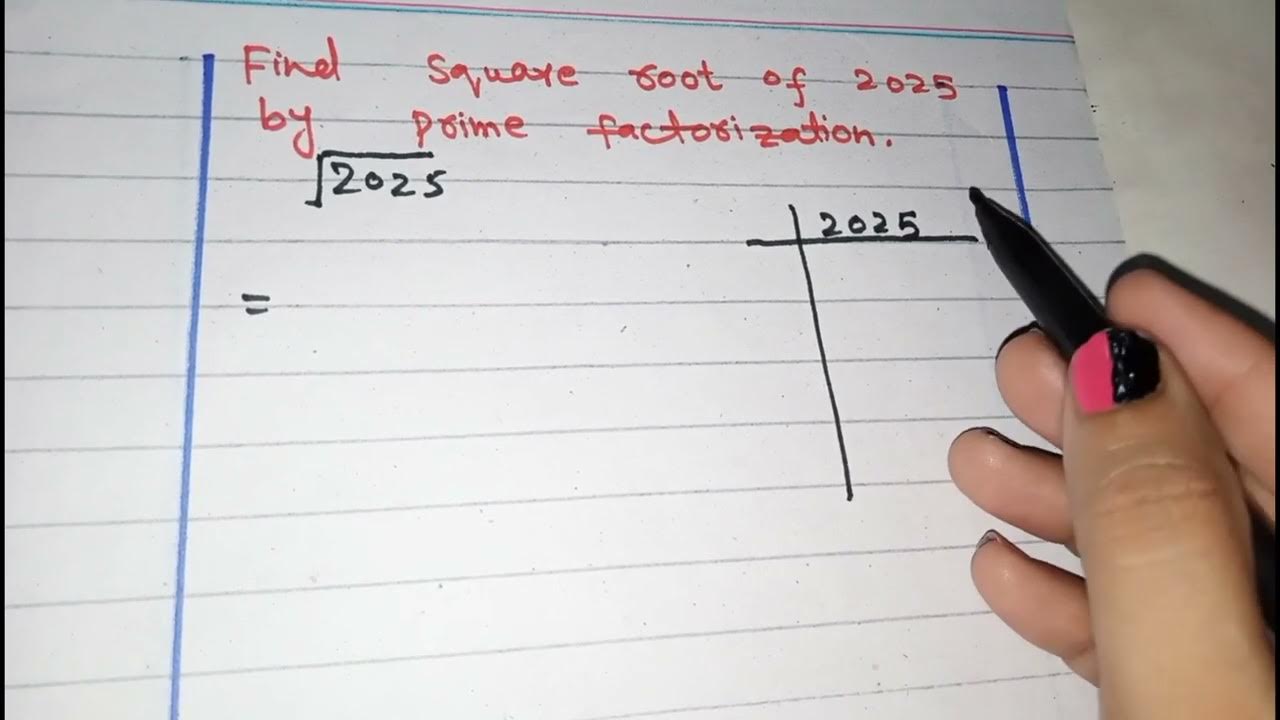 Find square root of 2025
by prime factorization.
√2025
2025
=